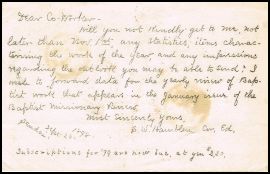 Dear Co-Worker—
Will you not kindly get to me, not
later than Nov. 1st any statistics, items charac-
terizing the work of the year and any impressions
regarding the outlook you may be able to send? I
need to forward data for the yearly review of Bap-
tist work that appears in the January issue of the
Baptist Missionary Review.
Most Sincerely Yours,
Cor. Ed.
Subscriptions for '79 are now due, at